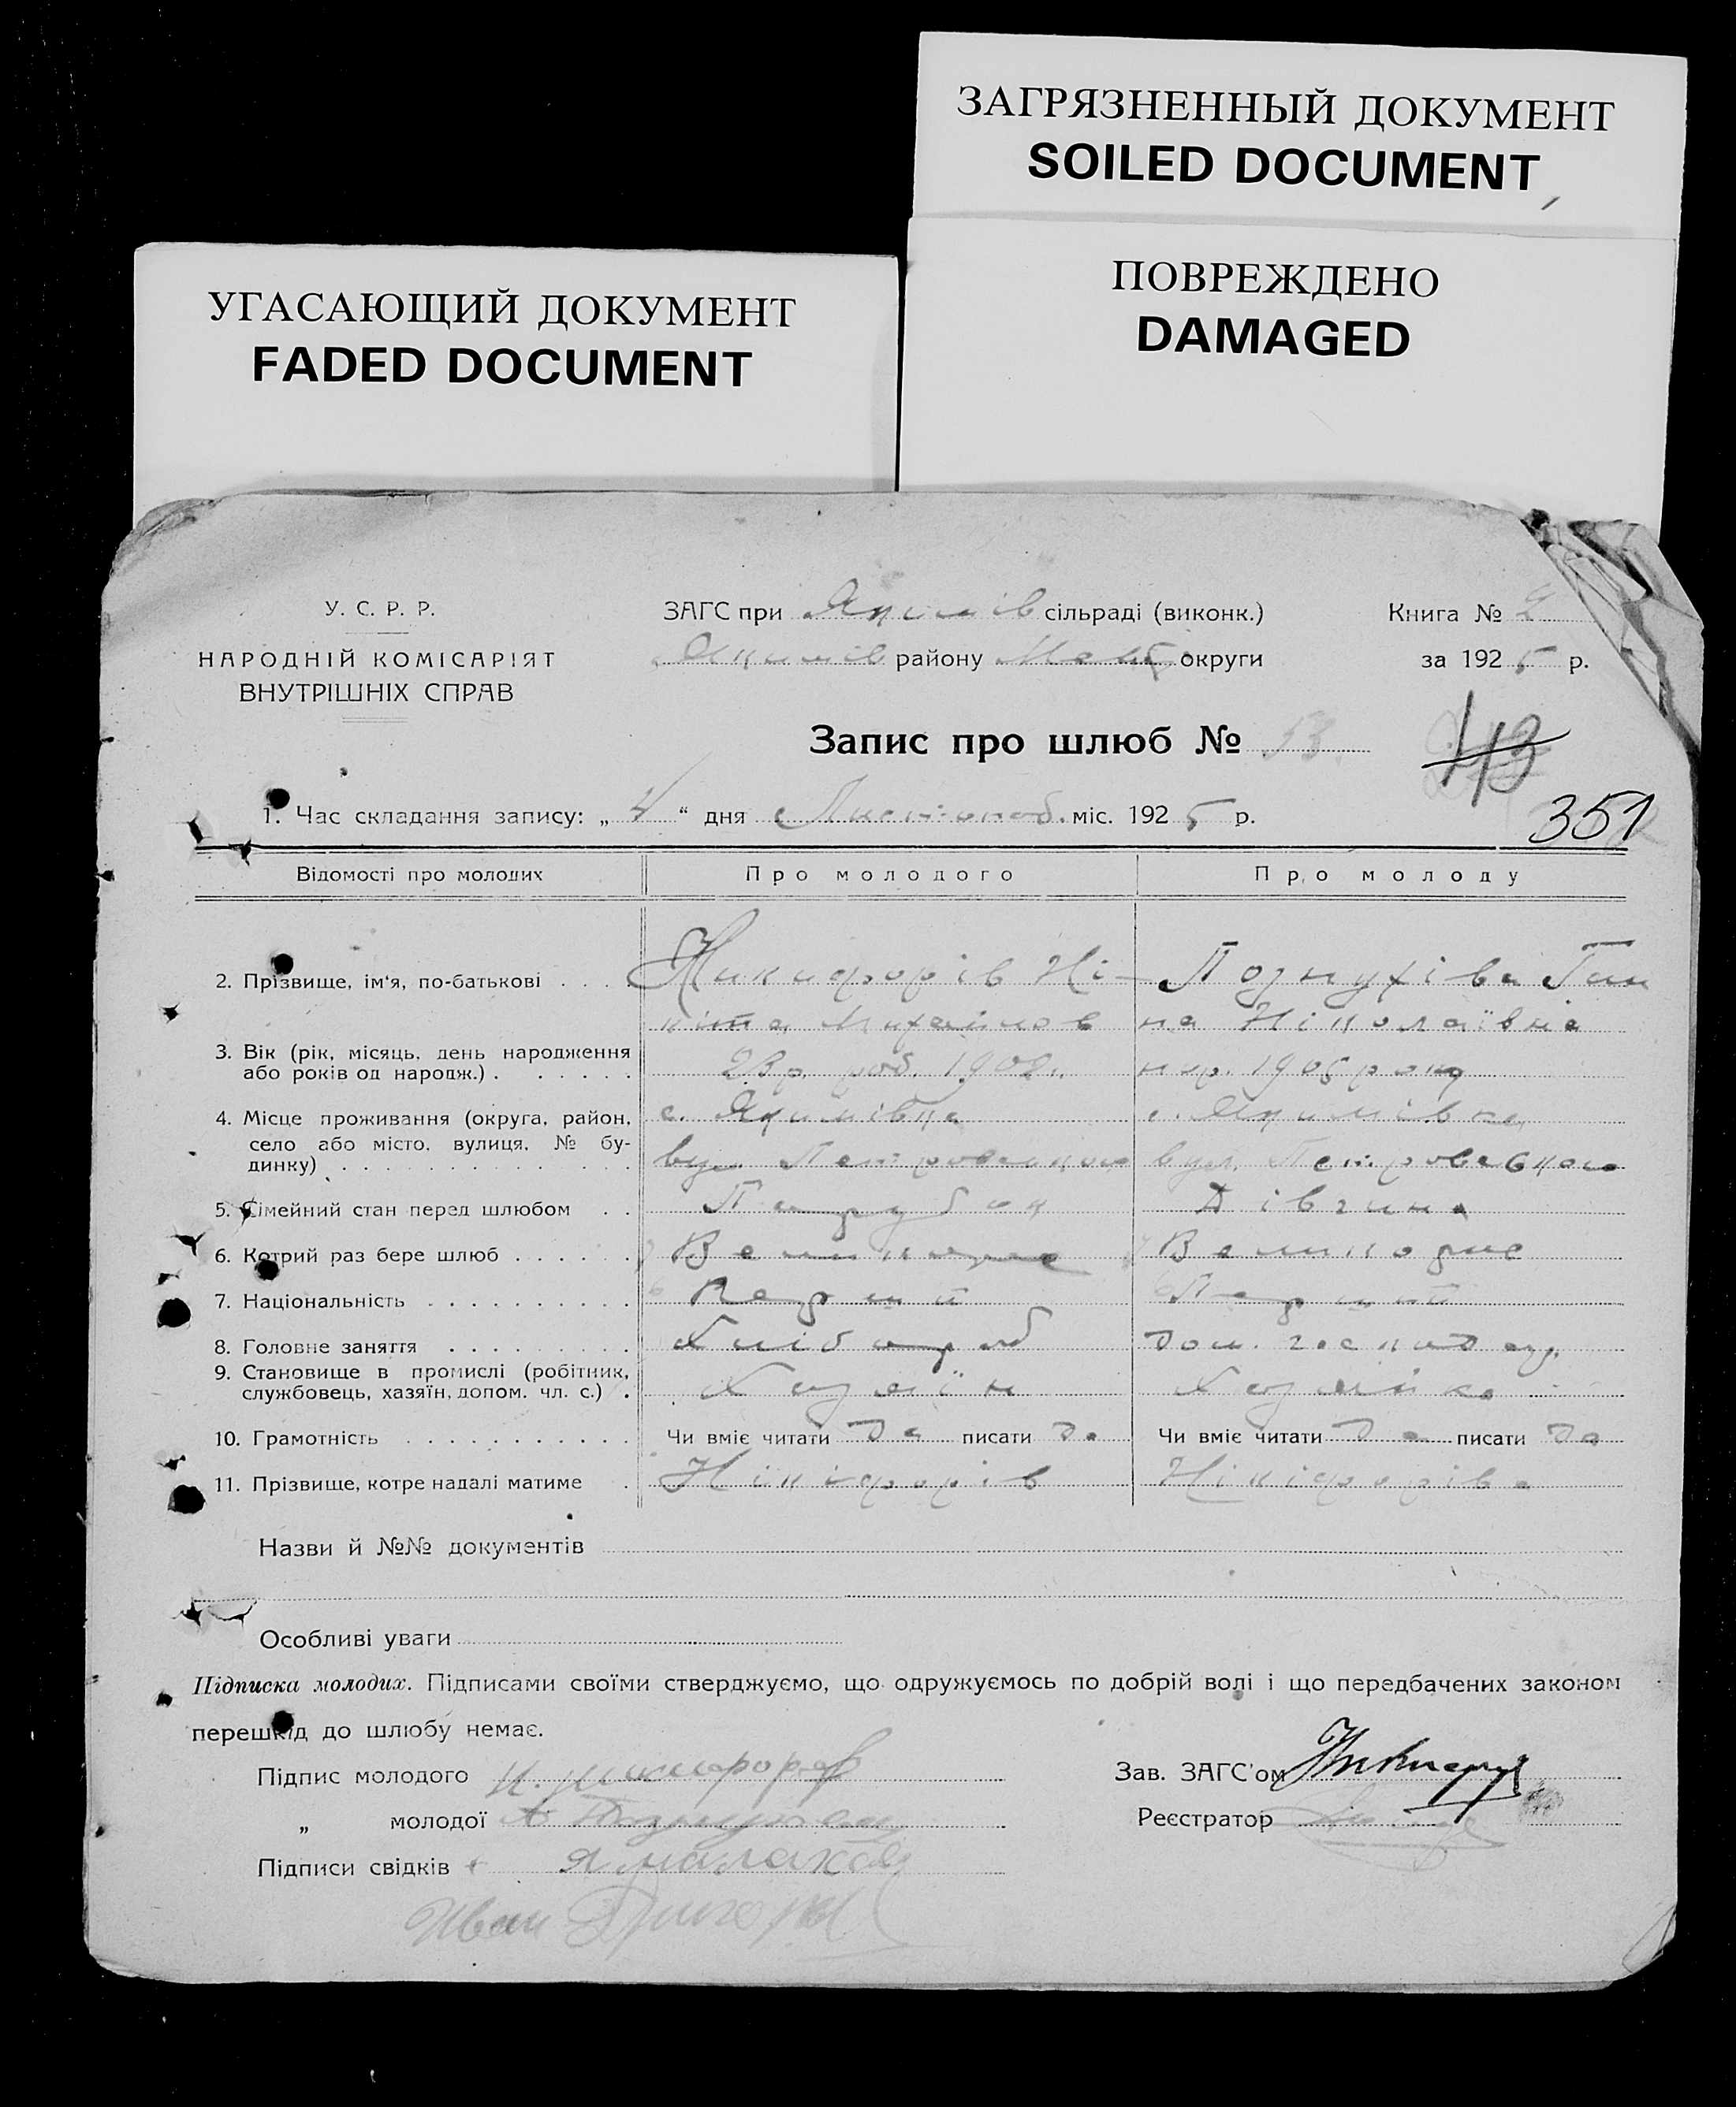 ЗАГРЯЗНЕННЫЙ ДОКУМЕНТ
SOILED DOCUMENT
ПОВРЕЖДЕНО
DAMAGED
УГАСАЮЩИЙ ДОКУМЕНТ
FADED DOCUMENT
У. С. Р. Р.
НАРОДНІЙ КОМІСАРІЯТ
ВНУТРІШНІХ СПРАВ
ЗАГС при Якимів сільраді (виконк.)
Якимів району округи
Книга № 2
за 1925 р.
Запис про шлюб № 53
113
351
1. Час складання запису: „ 4 “ дня Листопад. міс. 1925 р.
Відомості про молодих Про молодого Про молоду
2. Прізвище, ім‘я, по-батькові . . . Никифорів Ні- Позмухіва Ган
кіта Михайлов на Ніколаївна
3. Вік (рік, місяць, день народження
або років од народж.) . . . . . . 23 р. род. 1902 нар. 1905 року
4. Місце проживання (округа, район, с. Якимівка с. Якимівка
село або місто, вулиця, № бу-
динку) . . . . . . . . . . . . . вул. Петровського вул. Петровського
5. Сімейний стан перед шлюбом . . Парубок Дівчина
6. Котрий раз бере шлюб . . . . . .
7. Національність . . . . . . . . . . Перший Перший
8. Головне заняття . . . . . . . . . Хлібороб Дом. господар.
9. Становище в промислі (робітник,
службовець, хазяїн, допом. чл. с.) . Хазяїн Хазяйка
10. Грамотність . . . . . . . . . . . Чи вміє читати Да писати Да Чи вміє читати Да писати Да
11. Прізвище, котре надалі матиме . Нікіфорів Нікіфоріва
Назви й №№ документів
Особливі уваги
Підписка молодих. Підписами своїми стверджуємо, що одружуємось по добрій волі і що передбачених законом
перешкід до шлюбу немає.
Підпис молодого Н. Никифоров
„ молодої А
Підписи свідків
Иван
Зав. ЗАГС'ом
Реєстратор